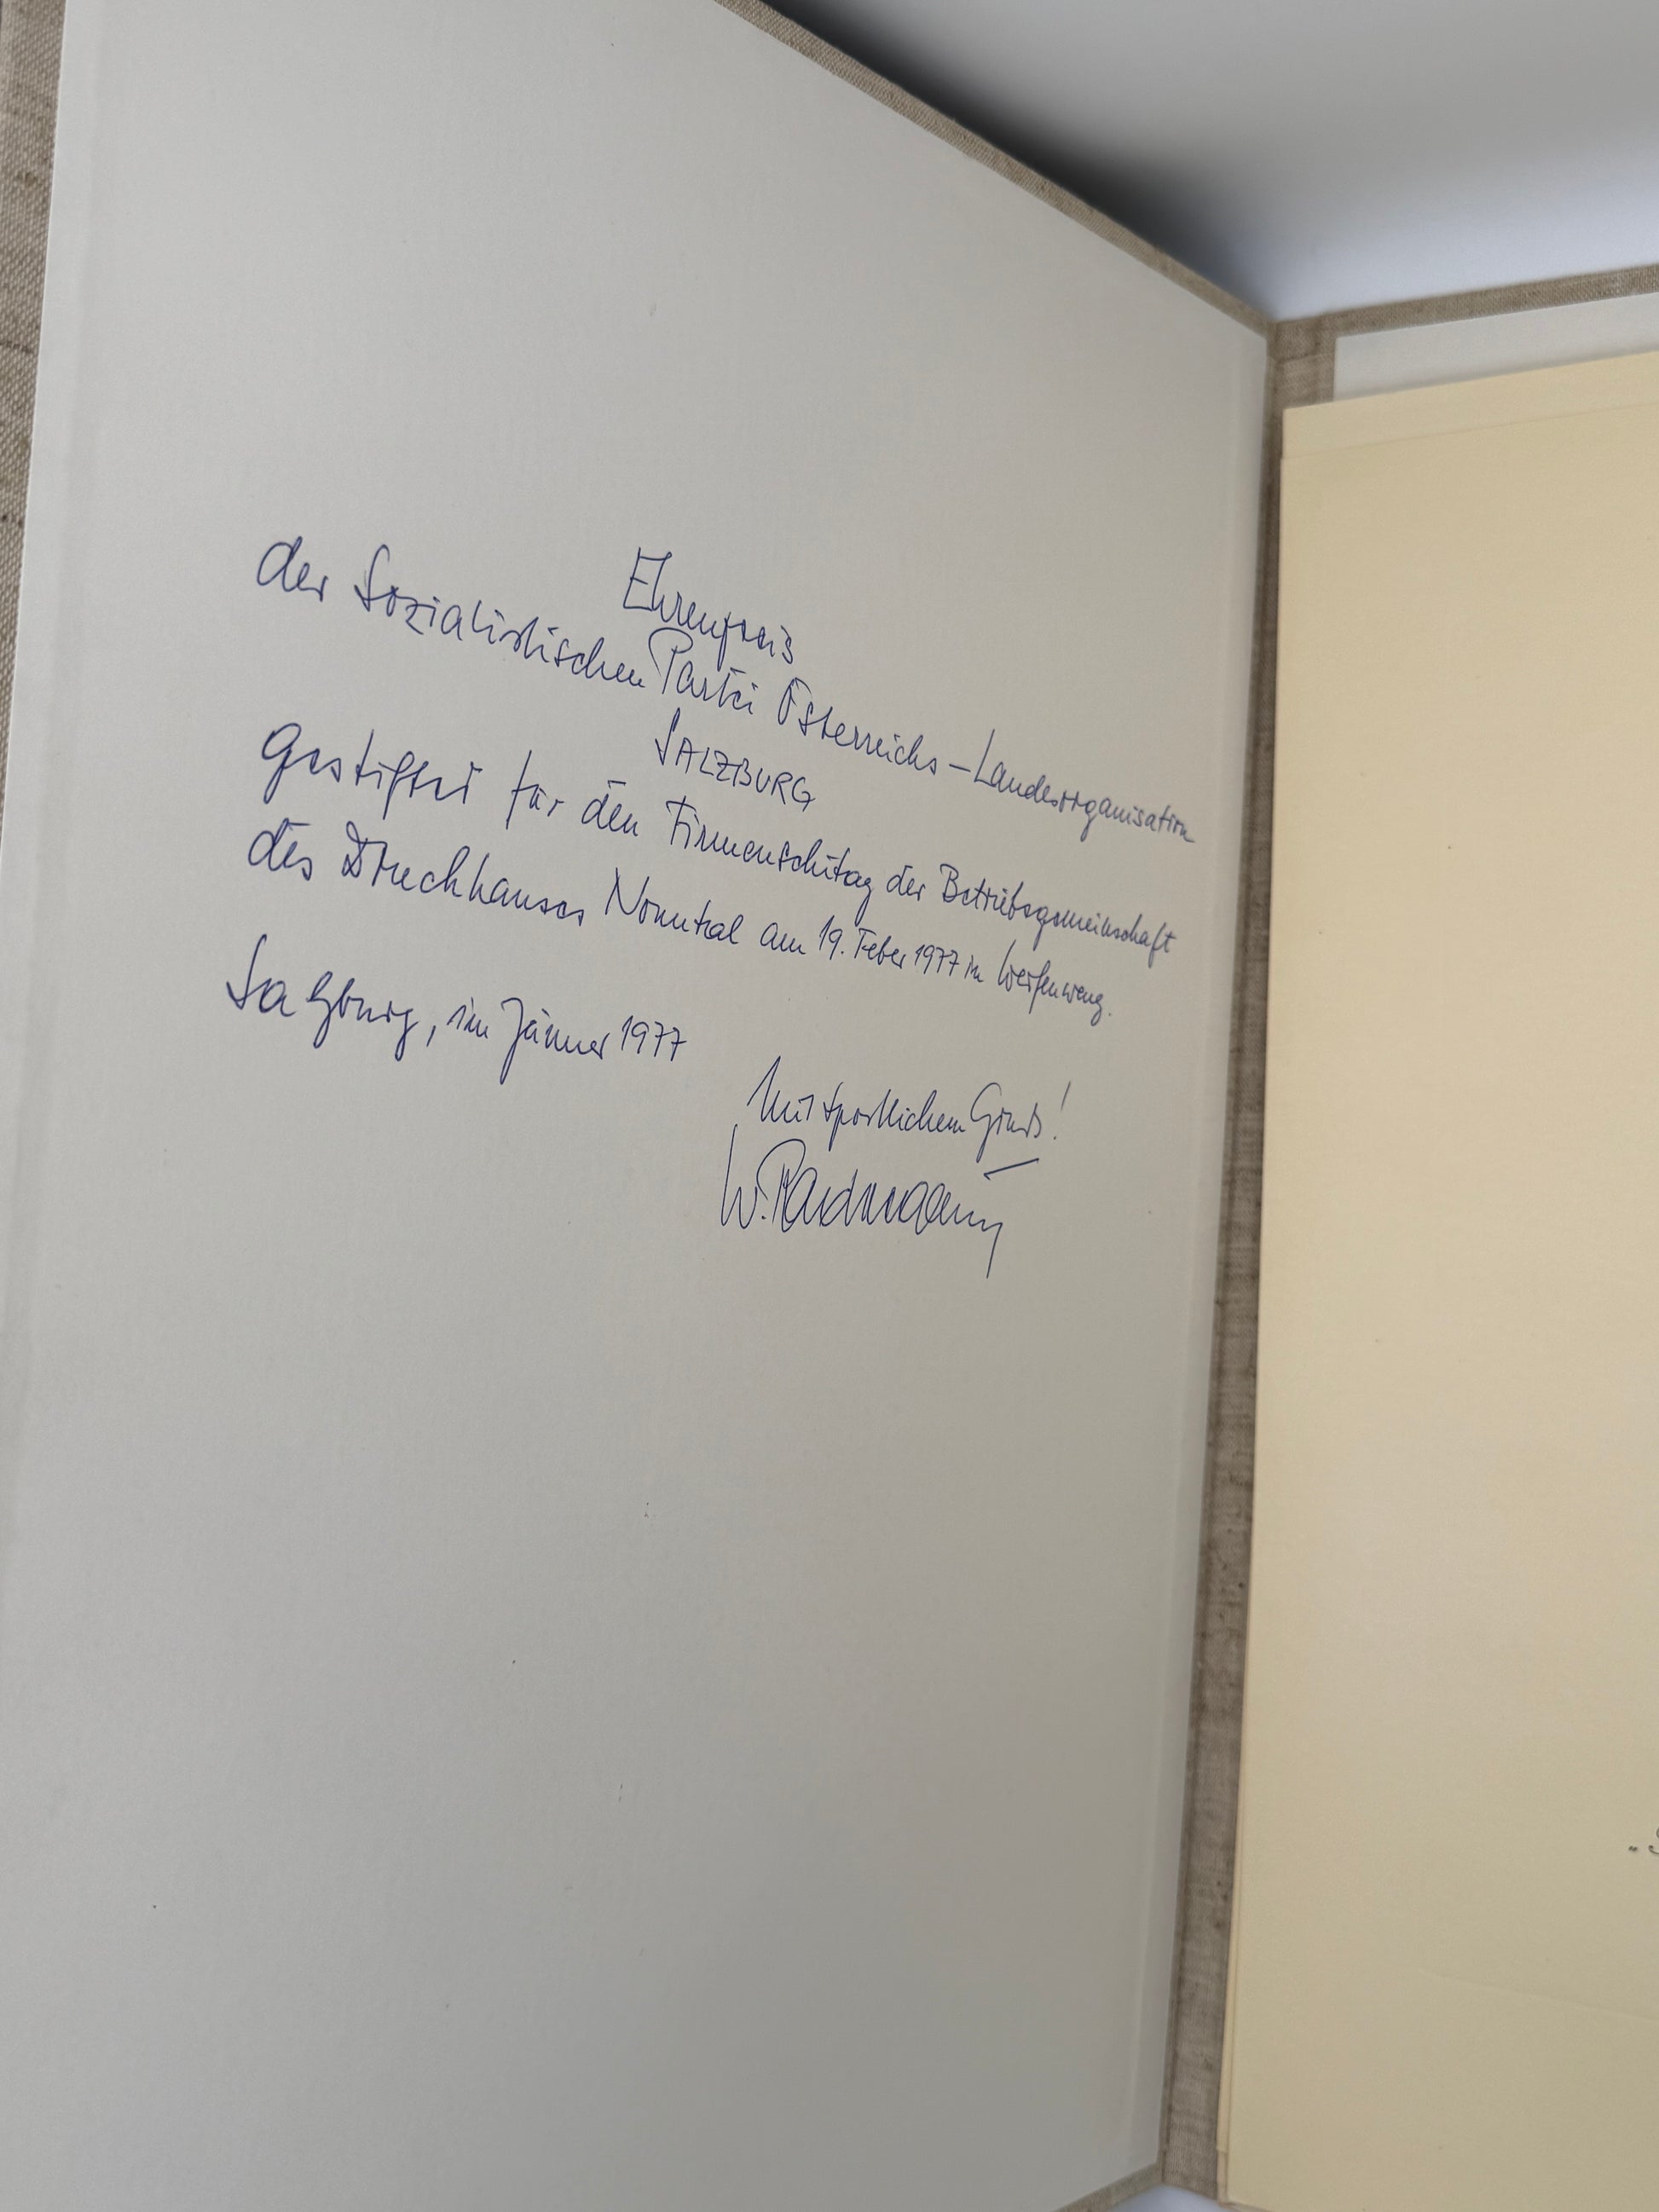 Ehrenpreis
der Sozialistischen Partei Österreichs – Landesorganisation
SALZBURG
gestiftet für den Firmenschitag der Betriebsgemeinschaft
des Druckhauses Nonntal am 19. Feber 1977 in Werfenweng.
Salzburg, im Jänner 1977
Mit sportlichem Gruß!
W. Radmann